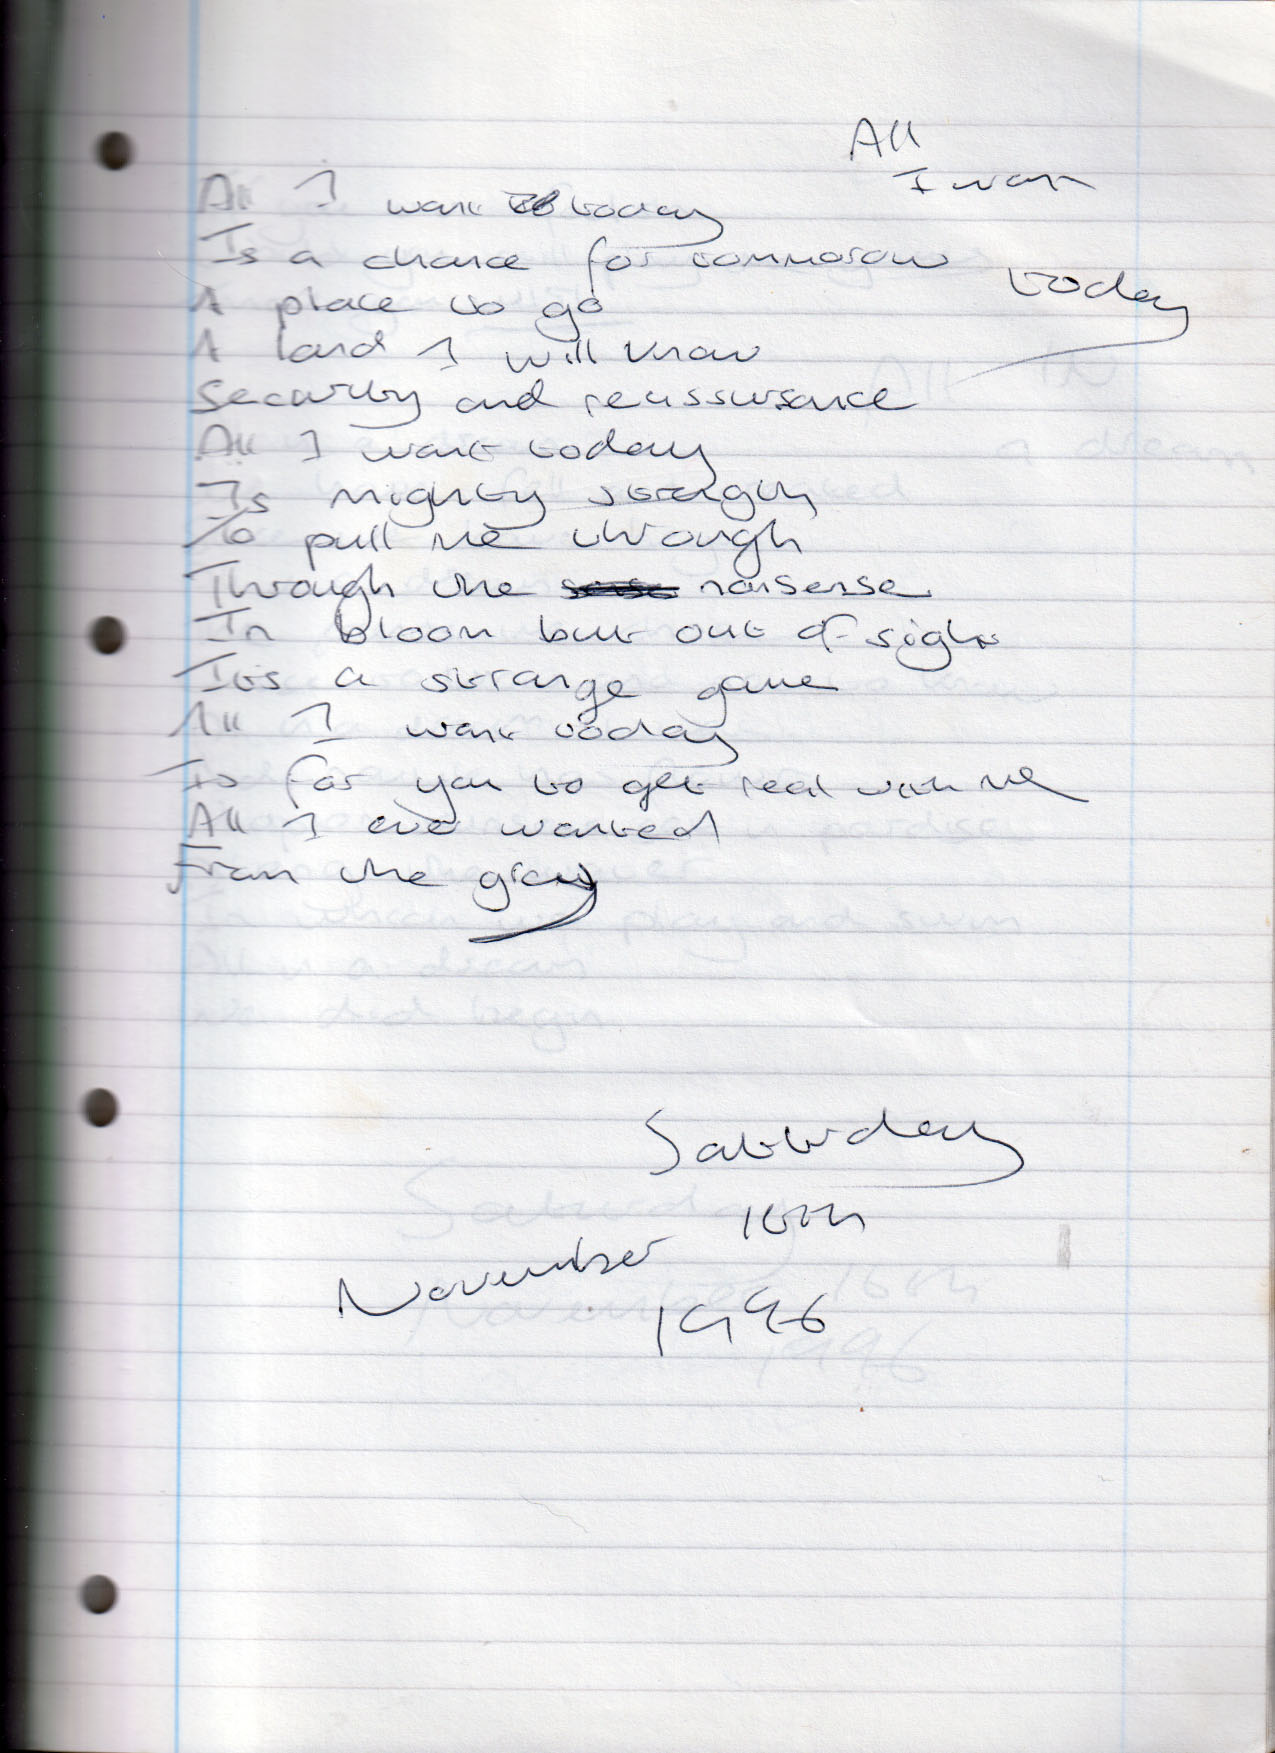 All
I want
today
All I want today
Is a chance for tommorow
A place to go
A land I will know
Security and reassurance
All I want today
Is mighty strength
To pull me through
Through the nonsense
In bloom but out of sight
Its a strange game
All I want today
Is for you to get real with me
All I ever wanted
From the
Saturday
16th
November
1996